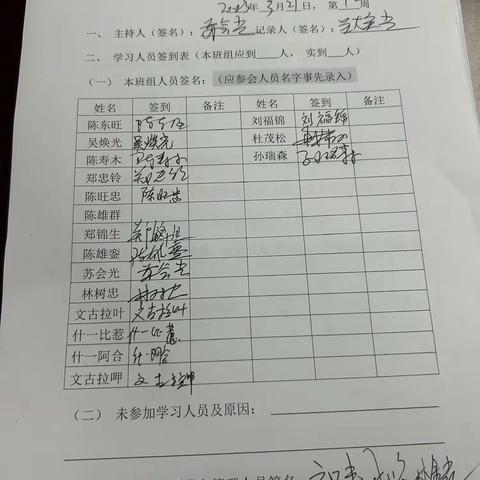 2023年3月21日,第 周
一、 主持人（签名）：苏会光 记录人（签名）：
二、 学习人员签到表（本班组应到____人，实到__人）
（一） 本班组人员签名：（应参会人员名字事先录入）
姓名 签到 备注 姓名 签到 备注
陈东旺 刘福锦 刘福锦
吴焕光 吴焕光 杜茂松
陈寿木 孙瑞森
郑忠铃
陈旺忠 陈旺忠
陈雄群
郑锦生 郑锦生
陈雄銮 陈雄銮
苏会光 苏会光
林树忠 林树忠
文古拉叶 文古拉叶
什一比惹 什一比惹
什一阿合 什一阿合
文古拉呷 文古拉呷
（二） 未参加学习人员及原因：